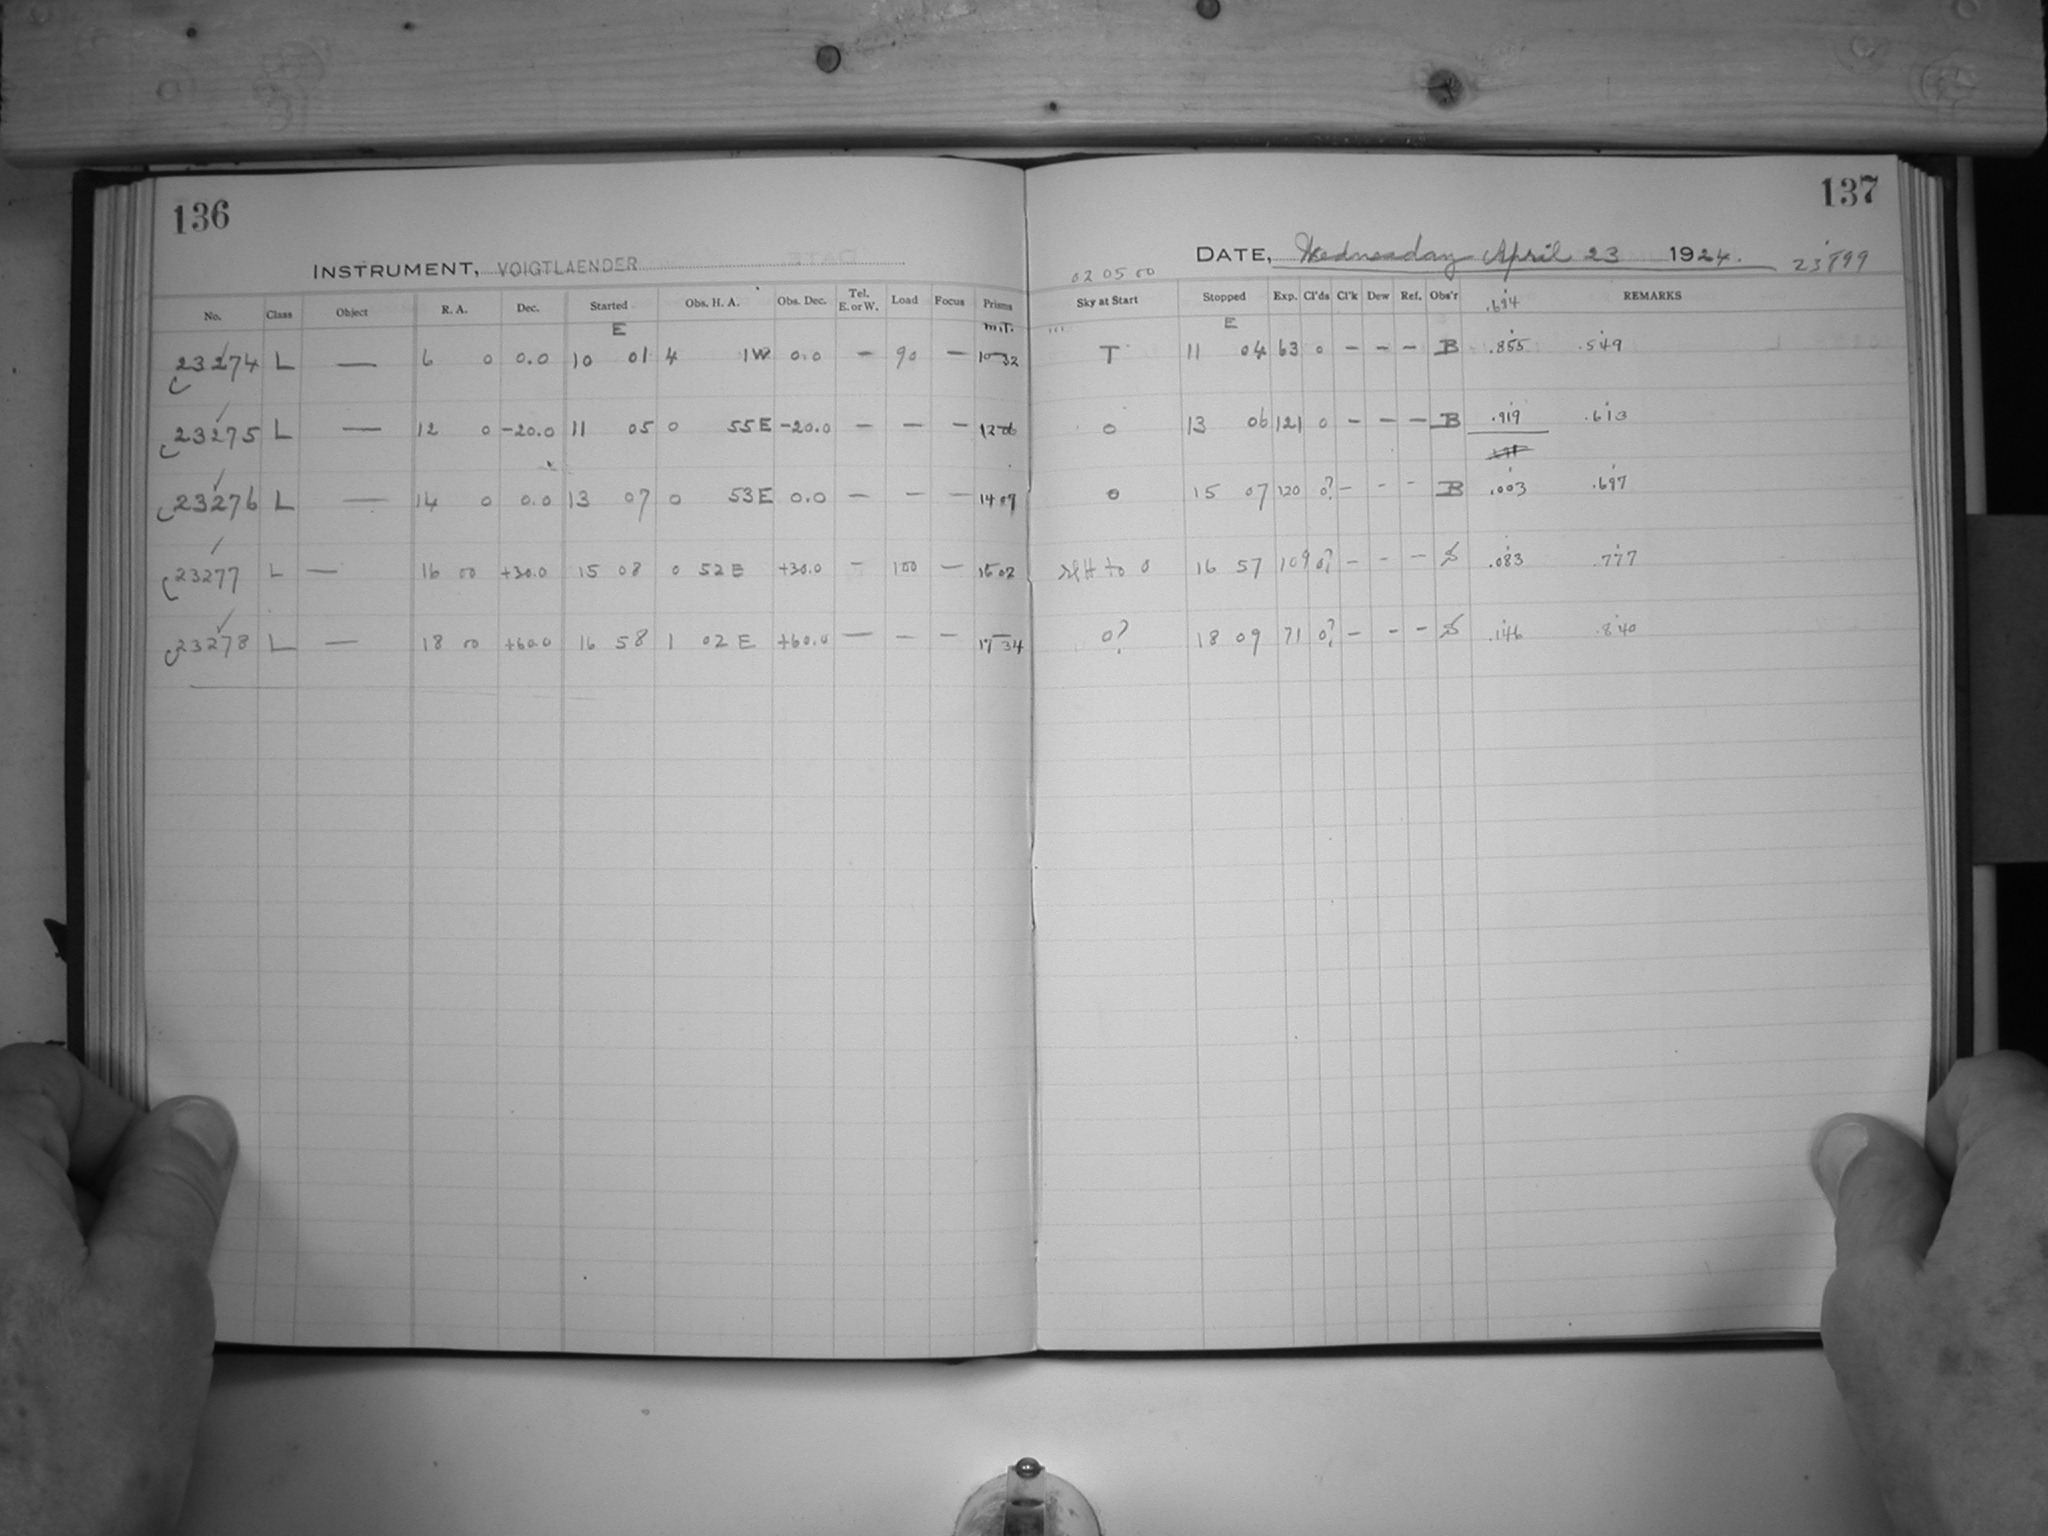 136
INSTRUMENT, VOIGTLAENDER
No. Class Object R. A. Dec. Started Obs. H. A. Obs. Dec. Tel. E. or W. Load Focus Prisms
E M.T.
23274 L — 6 0 0.0 10 01 4 1W 0.0 — 90 — 10 32
23275 L — 12 0 -20.0 11 05 0 55E -20.0 — — — 12 06
23276 L — 14 0 0.0 13 07 0 53E 0.0 — — — 14 07
23277 L — 16 00 +30.0 15 08 0 52E +30.0 — 100 — 16 02
23278 L — 18 00 +60.0 16 58 1 02E +60.0 — — — 17 34
137
DATE, Wednesday April 23 1924. 23899
02 05 00
Sky at Start Stopped Exp. Cl'ds Cl'k Dew Ref. Obs'r .694 REMARKS
E
T 11 04 63 0 — — — B .855 .549
0 13 06 121 0 — — — B .919 .613
0 15 07 120 0? — - - B .003 .697
to 0 16 57 109 0? — - — S .083 .777
0? 18 09 71 0? — - — S .146 .840